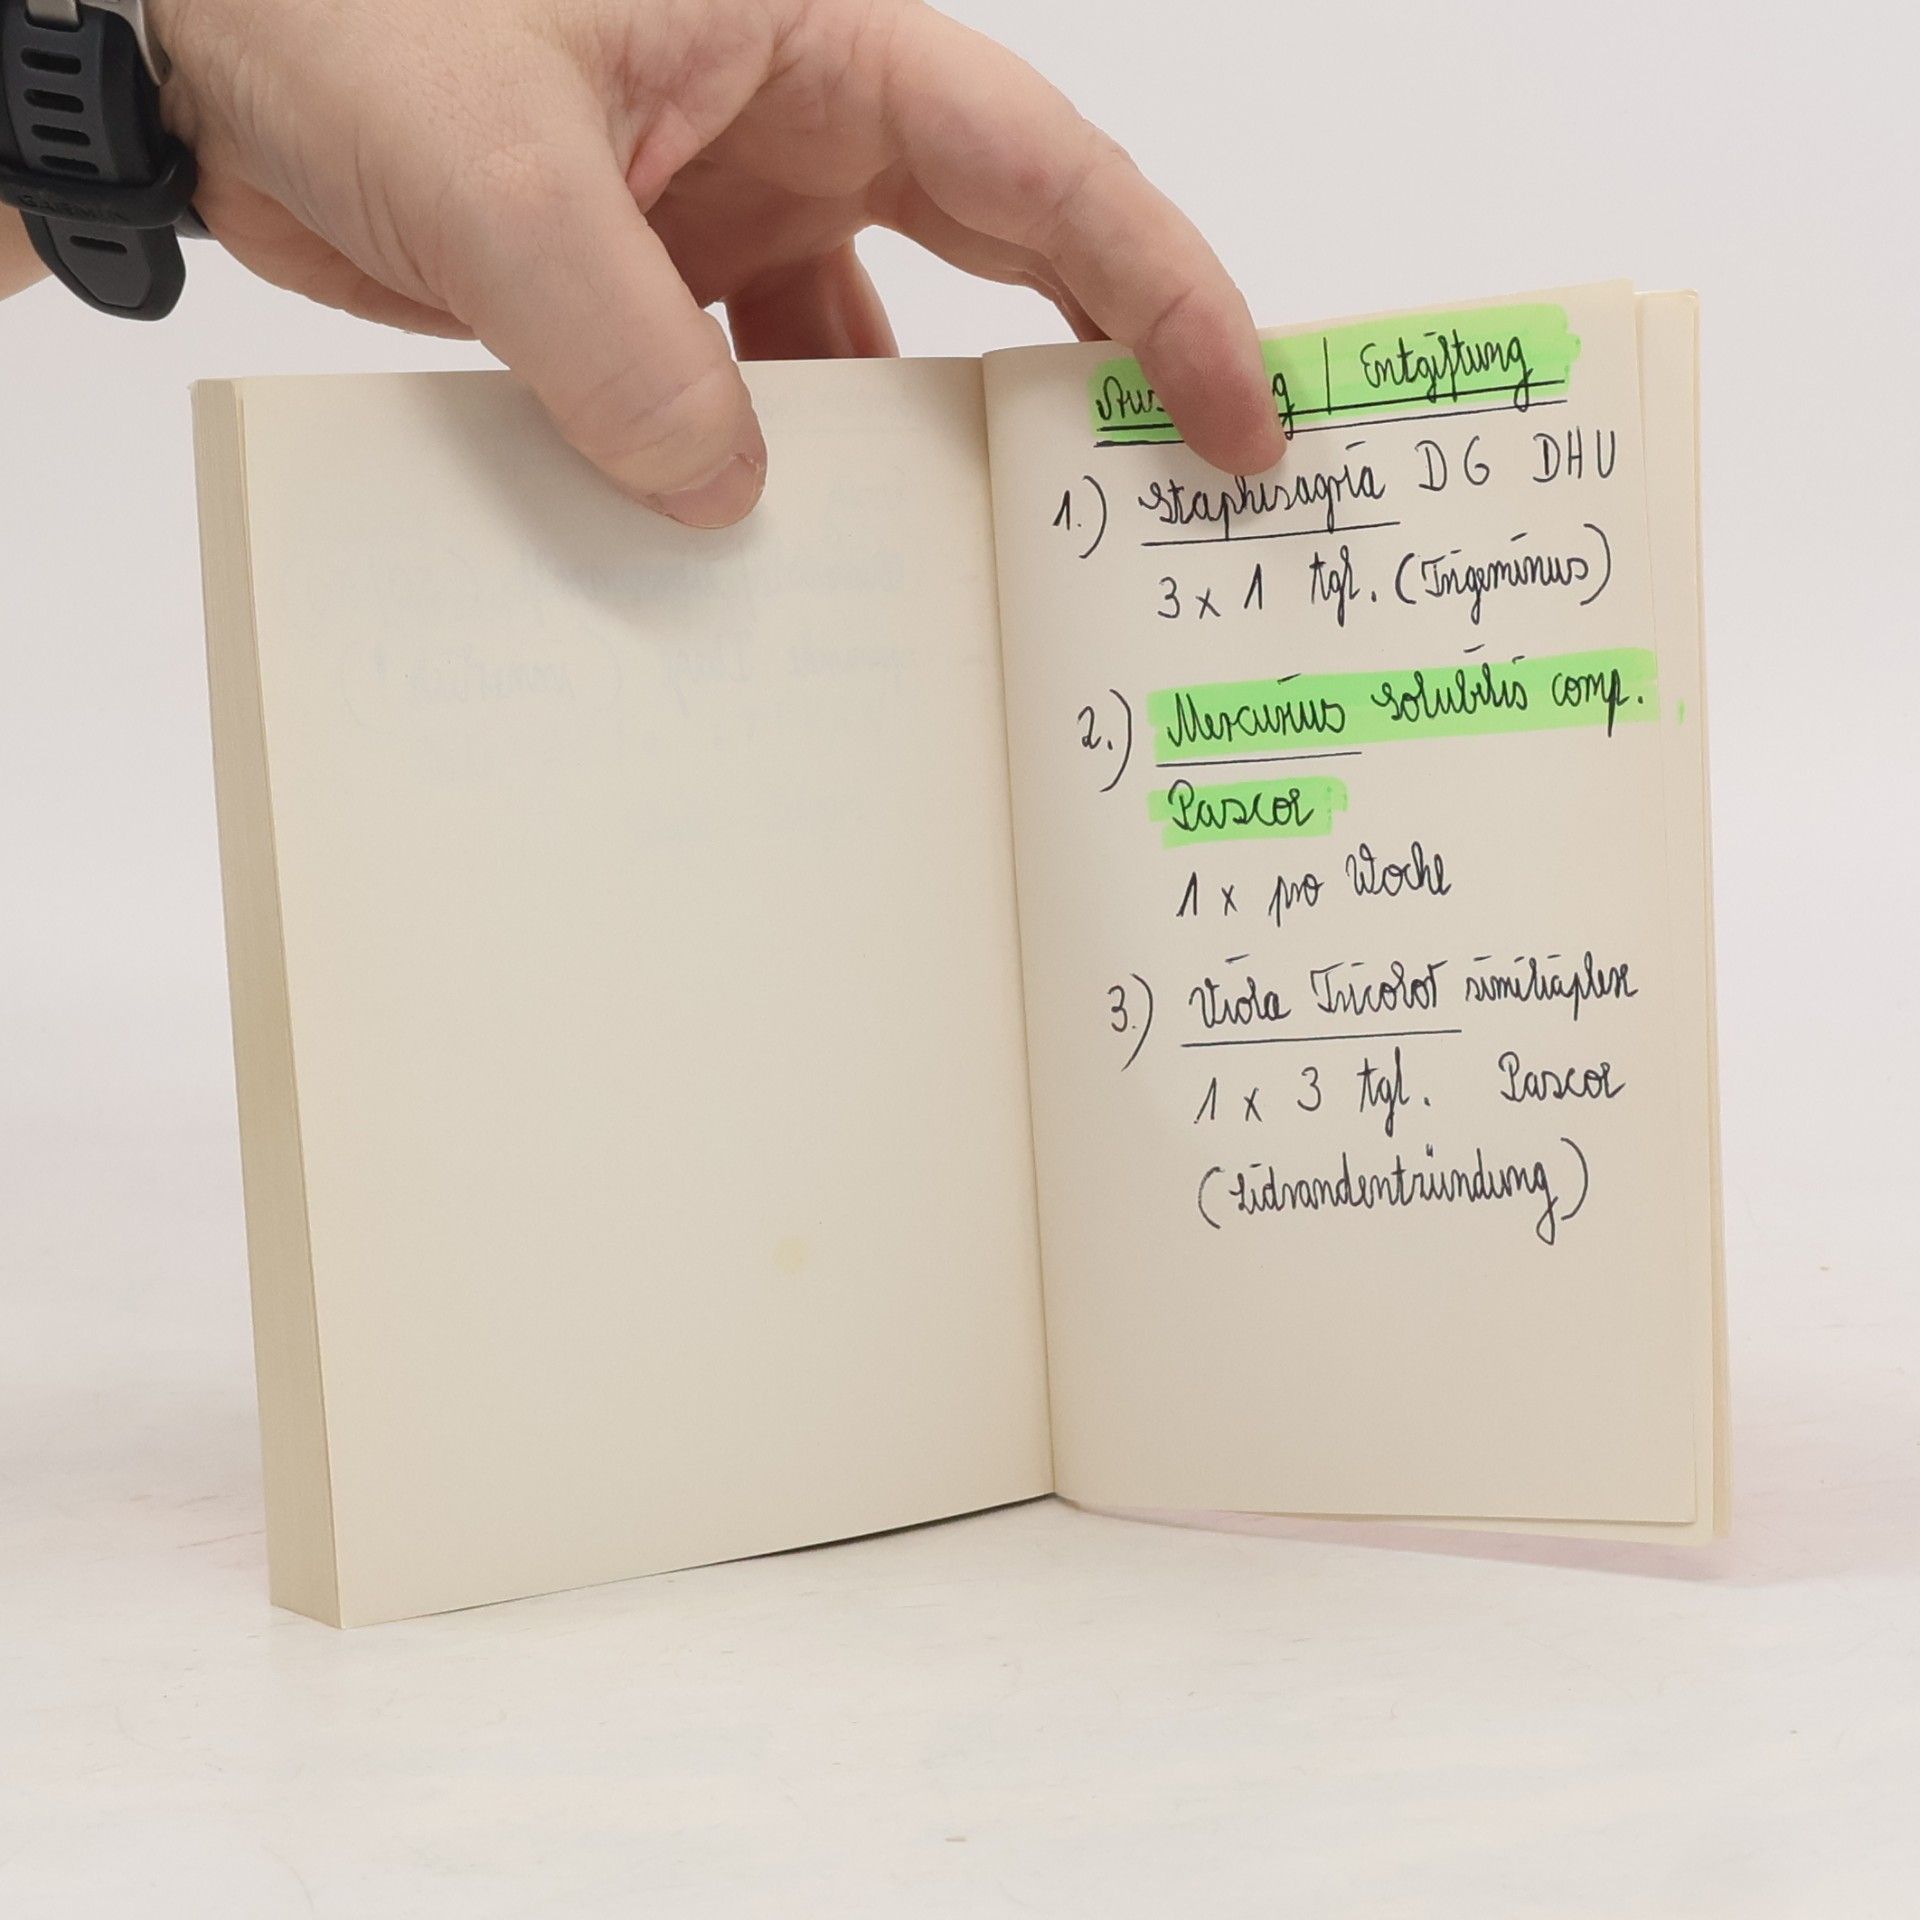 / Entgiftung
1.) Staphisagria D6 DHU
3 x 1 tgl. (Trigeminus)
2.) Mercurius solubilis comp.
Pascoe
1 x pro Woche
3.) Viola Tricolor similiaplex
1 x 3 tgl. Pascoe
(Lidrandentzündung)